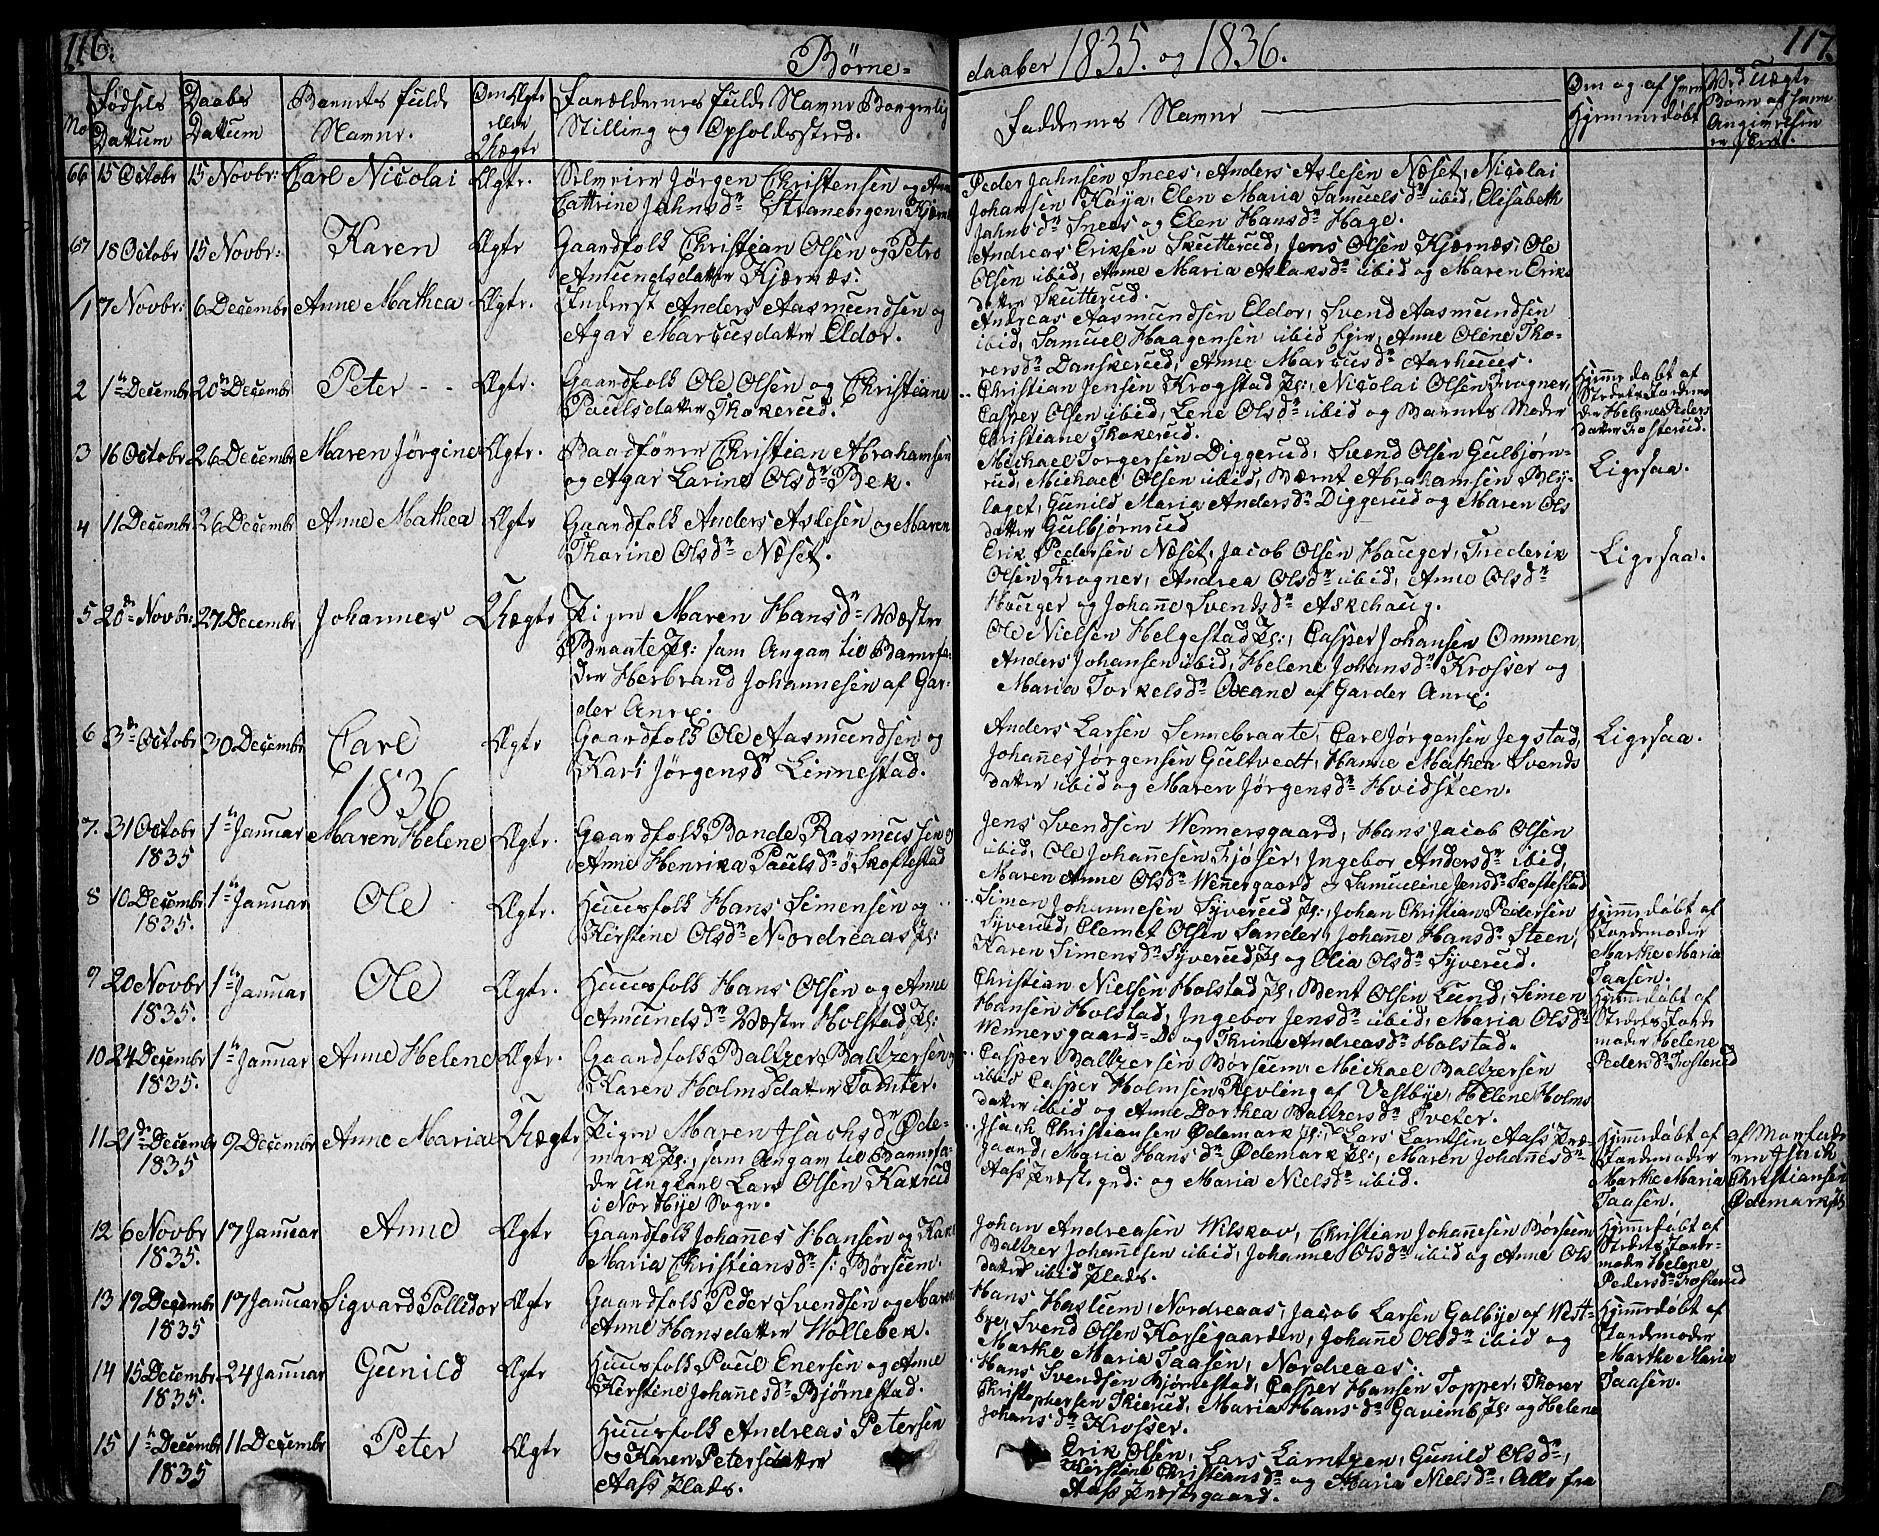 116.
Børne-
daaber 1835. og 1836.
117.
No
Fødsels Datum
Daabs Datum
Barnets fulde Navne.
Om Ægte eller Uægte
Forældrenes fulde Navne Borgerlig
Stilling og Opholdssted.
Faddernes Navne
Om og af hvem
Hjemmedøbt
Ved Uægte
Børn af hvem
Angivelsen
er skeet.
66 15 Octobr 15 Novbr: Carl Nicolai Ægte.
Jørgen Christensen og Anne
Cattrine Jahnsdr Stranengen, Kjærnæs
Peder Jahnsen Snees, Anders Aslesen Næset, Nicolai
Johansen Køya, Elen Maria Samuelsdr ibid, Elisabeth
Jahnsdr Snees og Elen Hansdr Hage.
67 18 Octobr 15 Novbr: Karen Ægte
Gaardfolk Christian Olsen og Petro
Amundsdatter Kjærnæs.
Andreas Eriksen Skutterud, Jens Olsen Kjærnæs, Ole
Olsen ibid, Anne Maria Aslaksdr ibid og Maren Eriks
datter Skutterud.
1 7 Novbr: 6 Decembr Anne Mathea Ægte.
Inderst Anders Aasmundsen og
Agar Marcusdatter Eldor.
Andreas Aasmundsen Eldor, Svend Aasmundsen
ibid, Samuel Haagensen ibid Eger, Anne Olene Tho-
rersdr Danskerud, Anne Marcusdr Aarhuus.
2 1te Decembr 20de Decembr Peter Ægte.
Gaardfolk Ole Olsen og Christiane
Paulsdatter Thokerud.
Christian Jensen Krogstad Pl:, Nicolai Olsen Frogner,
Casper Olsen ibid, Lene Olsdr ibid og Barnets Moder
Christiane Thokerud.
Hjemmedøbt af
Stedets Jordemo
der Helene Peders
datter Fosterud.
3 16 Octobr 26 Decembr Maren Jørgine Ægte.
Baadfører Christian Abrahamsen
og Agar Larine Olsdr Bek.
Michael Torgersen Diggerud, Svend Olsen Gulbjørn-
rud, Michael Olsen ibid, Bernt Abrahamsen Bly-
laget, Gunild Maria Andersdr Diggerud og Maren Ols
datter Gulbjørnrud
Ligesaa.
4 11 Decembr 26 Decembr Anne Mathea Ægte
Gaardfolk Anders Aslesen og Maren
Tharine Olsdr Næset.
Erik Pedersen Næset, Jacob Olsen Hauger, Frederik
Olsen Frogner, Andrea Olsdr ibid, Anne Olsdr
Hauger og Johane Svendsdr Askehaug.
Ligesaa.
5 20de Novbr: 27 Decembr Johannes Uægte
Pigen Maren Hansdr Vestre
Braate Pl: som Angav til Barnefa-
der Herbrand Johannesen af Gar-
der Anex.
Ole Nielsen Helgestad Pl:, Casper Johansen Ommen,
Anders Johansen ibid, Helene Johansdr Krosser og
Maria Torkelsdr Oxane af Garder Anex.
6 3de Octobr 30 Decembr Carl Ægte
Gaardfolk Ole Aasmundsen og
Kari Jørgensdr Linnestad.
Anders Larsen Sennebraate, Carl Jørgensen Jegstad,
Johanes Jørgensen Gultvedt, Hanne Mathea Svends
datter ibid og Maren Jørgensdr Hvidsteen.
Ligesaa.
1836
7. 31 Octobr 1835 1te Januar Maren Helene Ægte.
Gaardfolk Bonde Rasmussen og
Anne Henrika Paulsdr i Skoftestad
Jens Svendsen Wennersgaard, Hans Jacob Olsen
ibid, Ole Johanesen Fjøser, Ingebor Andersdr ibid,
Maren Anne Olsdr Wenersgaard og Samueline Jensdr Skoftestad
8 10 Decembr 1835. 1te Januar Ole Ægte.
Huusfolk Hans Simensen og
Kirstine Olsdr Nordreaas Pl:
Simon Johannesen Syverud Pl:, Johan Christian Pedersen
Syverud, Clemet Olsen Sander, Johane Hansdr Steen,
Karen Simensdr Syverud Pl og Olia Olsdr Syverud.
Hjemmedøbt af
Jordemoder
Marthe Maria
Taasen.
9 20 Novbr 1835. 1te Januar Ole Ægte.
Huusfolk Hans Olsen og Anne
Amundsdr Vestre Holstad Pl:
Christian Nielsen Holstad Pl:, Bent Olsen Lund, Simen
Hansen Holdstad, Ingebor Jensdr ibid, Maria Olsdr
Wennersgaard og Thrine Andreasdr Holstad.
Hjemmedøbt af
Stedets Jorde
moder Helene
Pedersdr Fosterud
10 24 Decembr 1835. 1te Januar Anne Helene Ægte.
Gaardfolk Baltzer Baltzersen og
Karen Holmsdatter Tomter.
Casper Baltzersen Børsum, Michael Baltzersen
ibid Casper Holmsen Revling af Vestbye, Helene Holms
datter ibid og Anne Dorthea Baltzersdr Sveter.
11 21de Decembr 1835 9 Decembr Anne Maria Uægte
Pigen Maren Isachsdr Øde-
mark Pl:, som Angav til Barnefa-
der Ungkarl Lars Olsen Kaxrud
i Nordbye Sogn.
Isach Christiansen Ødemark Pl:, Lars Larntsen Aass Præ-
gaard, Maria Hansdr Ødemark Pl:, Maren Johanesdr
Aass Præstegrd: og Maria Nielsdr ibid.
Hjemmedøbt af
Jordemoder
Marthe Maria
Taasen.
af Morfade-
ren Isach
Christiansen
Ødemark Pl:
12 6 Novbr 1835. 17 Januar Anne Ægte
Gaardfolk Johanes Hansen og Karen
Maria Christiansdr S: Børsum.
Johan Andreasen Wilskov, Christian Johanesen Børsum
Baltzer Johanesen ibid, Johanne Olsdr ibid og Anne Ols
datter ibid Plads.
Hjemmedøbt af
Stedets Jorde-
moder Helene
Pedersdr Fosterud
13 19 Decembr 1835 17 Januar Sigvard Pollidor Ægte
Gaardfolk Peder Svendsen og Maren
Anne Hansdatter Wollebek.
Hans Haslum, Nordreaas, Jacob Larsen Galbye af West-
bye, Svend Olsen Korsegaarden, Johane Olsdr ibid og
Marthe Maria Taasen, Nordreaas.
Hjemmedøbt af
Jordemoder
Marthe Maria
Taasen.
14 15 Decembr 1835. 24 Januar Gunild Ægte
Huusfolk Poul Enersen og Anne
Kirstine Johanesdr Bjørnestad.
Hans Svendsen Bjørnestad, Casper Hansen Topper, Thorer
Christophersen Skierud, Maria Hansdr Gavimb Pl: og Helene
Johansdr Krosser.
15 1te Decembr 1835 11 Decembr Peter Ægte
Huusfolk Andreas Petersen
og Karen Petersdatter
Aass Plads.
Erik Olsen, Lars Larntzen, Gunild Olsdr,
Kirstine Christiansdr og Maria Nielsdr, Alle fra
Aass Præstegaard.